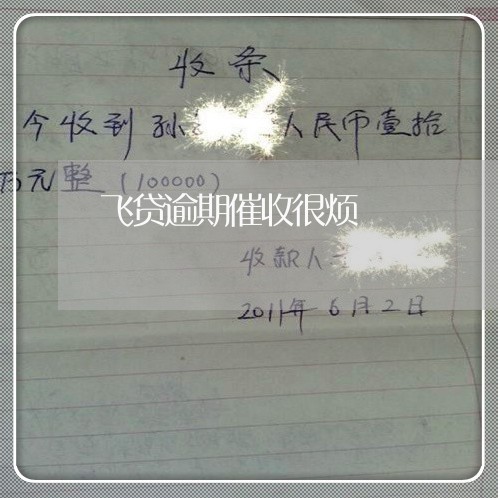 收条
今收到孙人民币壹拾
万元整(100000)
飞贷逾期催收很烦
收款人
2011年6月2日